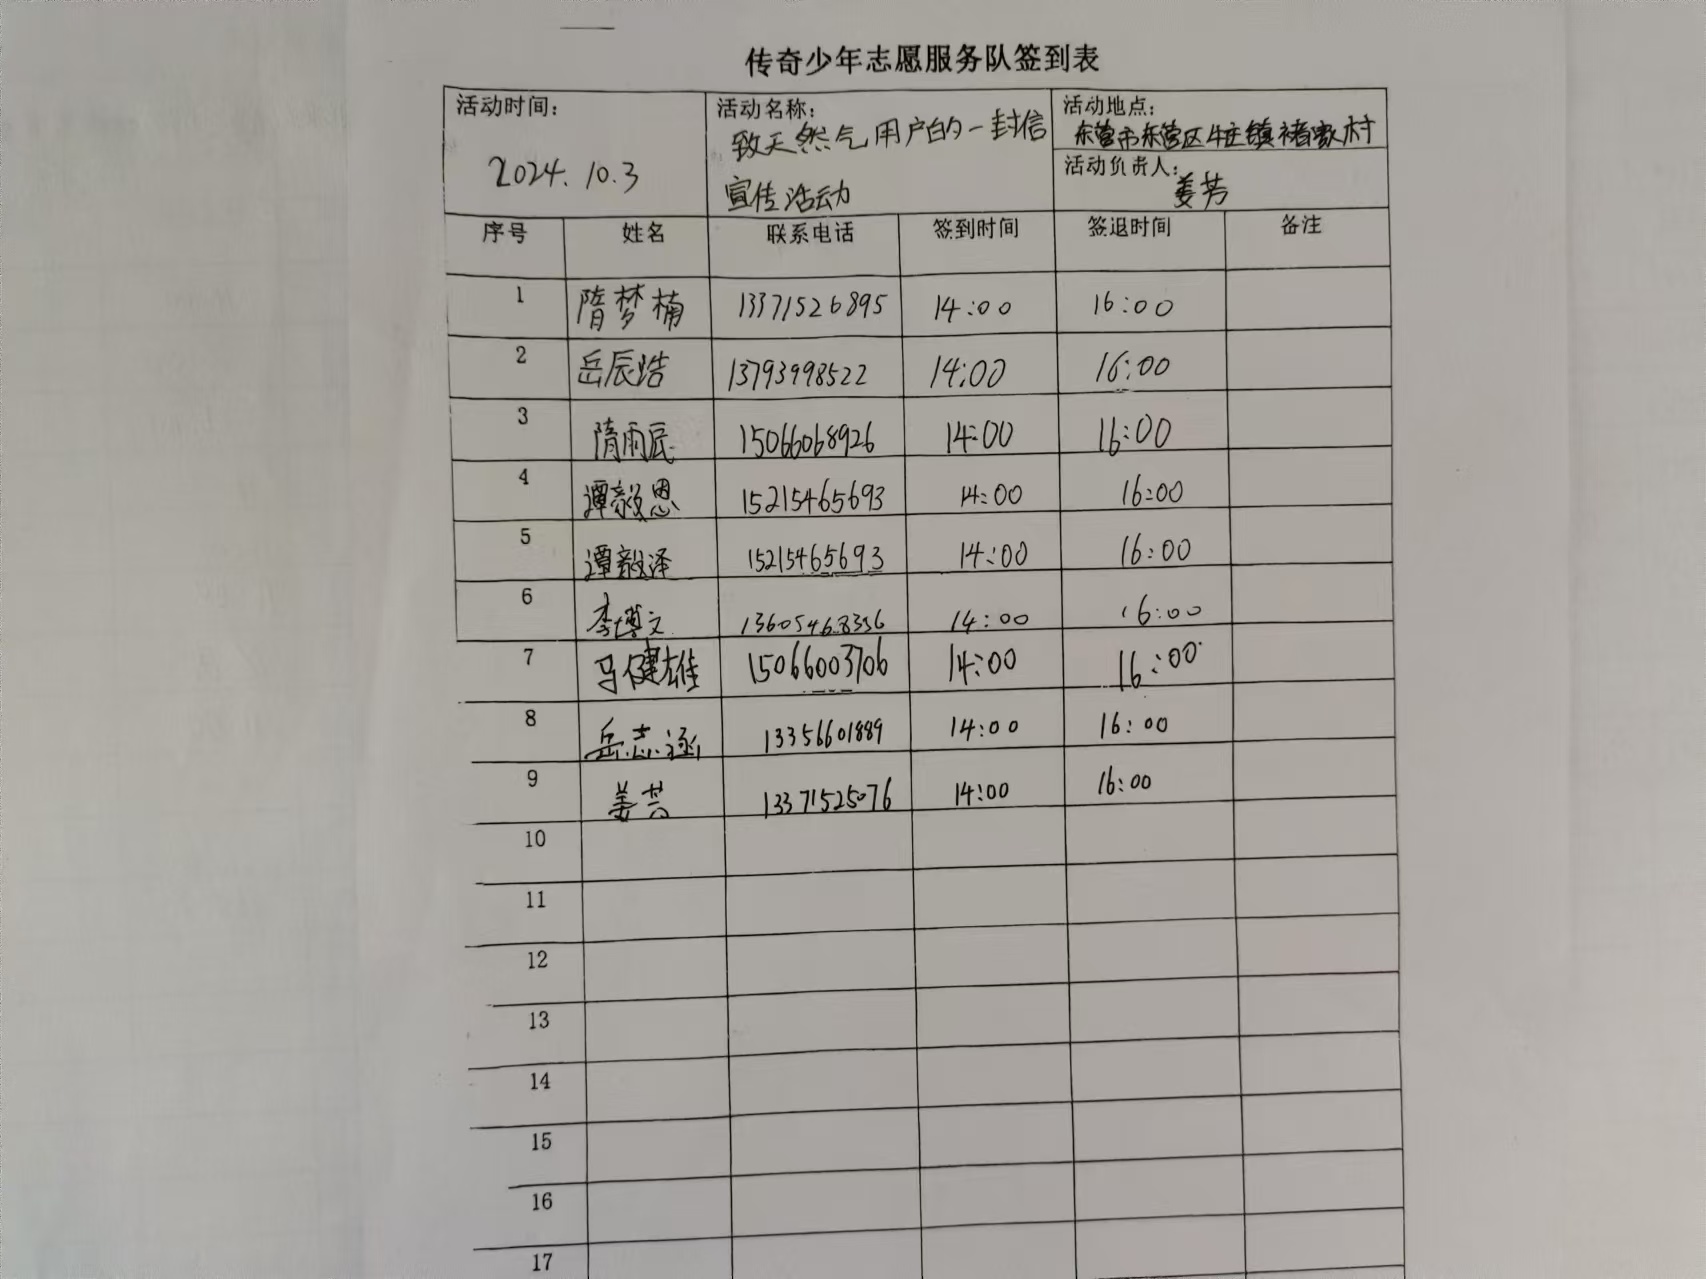 传奇少年志愿服务队签到表
活动时间： 活动名称： 活动地点：
致天然气用户的一封信 东营市东营区牛庄镇褚家村
2024.10.3 宣传活动 活动负责人： 姜芳
序号 姓名 联系电话 签到时间 签退时间 备注
1 隋梦楠 13371526895 14:00 16:00
2 岳辰浩 13793998522 14:00 16:00
3 隋雨辰 15066068926 14:00 16:00
4 谭毅恩 15215465693 14:00 16:00
5 谭毅泽 15215465693 14:00 16:00
6 李博文 13605468356 14:00 16:00
7 马健雄 15066003706 14:00 16:00
8 岳志涵 13356601889 14:00 16:00
9 姜芳 13371525076 14:00 16:00
10
11
12
13
14
15
16
17